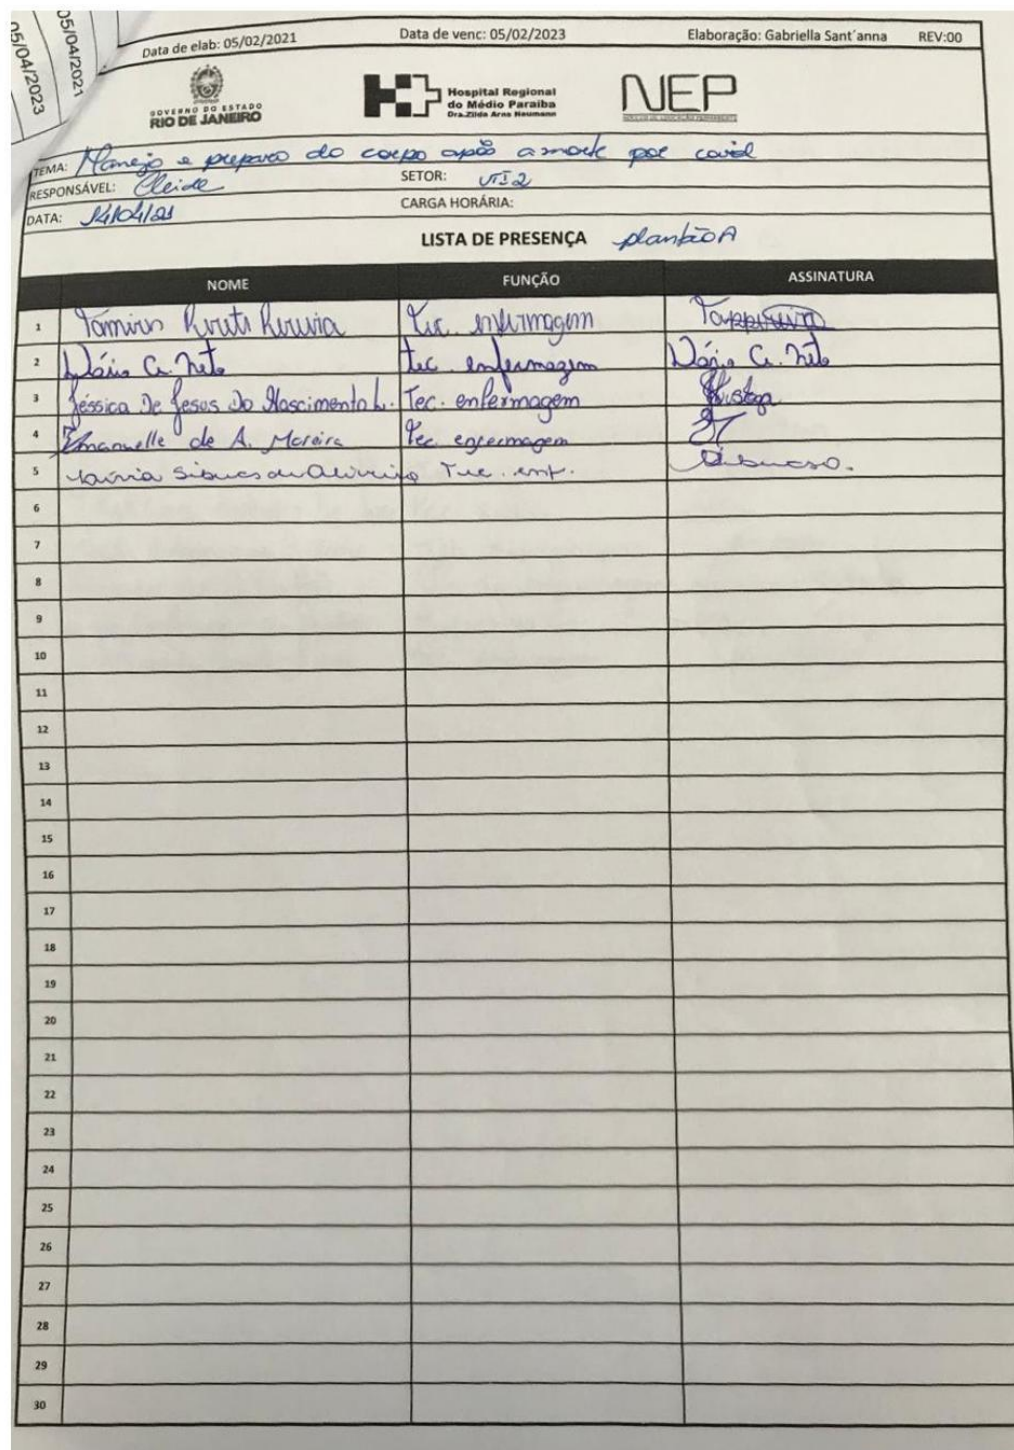 05/04/2023
05/04/2021
Data de elab: 05/02/2021 Data de venc: 05/02/2023 Elaboração: Gabriella Sant´anna REV:00
GOVERNO DO ESTADO
RIO DE JANEIRO
Hospital Regional
do Médio Paraíba
Dra.Zilda Arns Neumann
NEP
NÚCLEO DE EDUCAÇÃO PERMANENTE
TEMA: Manejo e preparo do corpo após a morte por covid
RESPONSÁVEL: Cleide SETOR: UTI 2
DATA: 14/04/21 CARGA HORÁRIA:
LISTA DE PRESENÇA plantão A
NOME FUNÇÃO ASSINATURA
1 Tec. enfermagem
2 Dário G. Neto tec enfermagem Dário G. Neto
3 Jéssica De Jesus Do Nascimento L. Tec. enfermagem
4 Emanuelle de A. Moreira Tec enfermagem
5 de Oliveira Tec. enf.
6
7
8
9
10
11
12
13
14
15
16
17
18
19
20
21
22
23
24
25
26
27
28
29
30